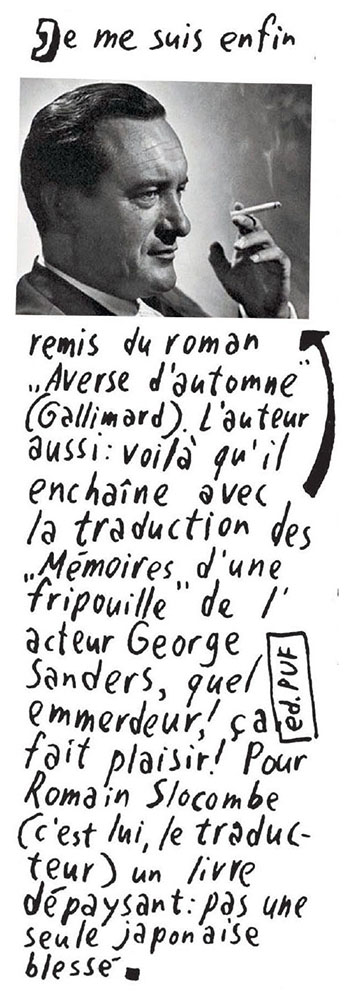 Je me suis enfin
remis du roman
„Averse d'automne"
(Gallimard). L'auteur
aussi: voilà qu'il
enchaîne avec
la traduction des
„Mémoires d'une
fripouille" de l'
acteur George
Sanders, quel
emmerdeur! ça
éd. PUF
fait plaisir! Pour
Romain Slocombe
(c'est lui, le traduc-
teur) un livre
dépaysant: pas une
seule japonaise
blessé